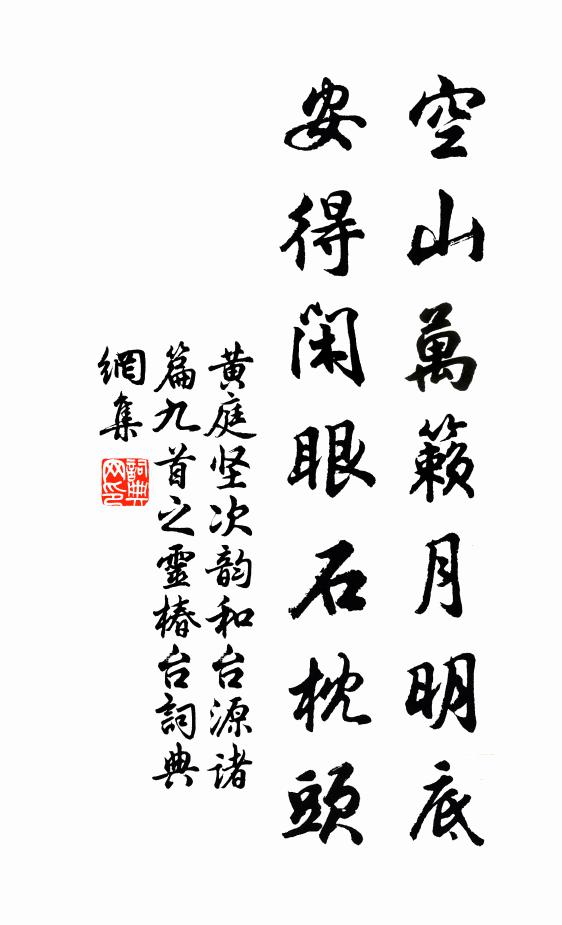 空山萬籟月明底
安得閑眼石枕頭
黄庭坚次韵和台源诸
篇九首之靈椿台詞典
網集
詞典网印